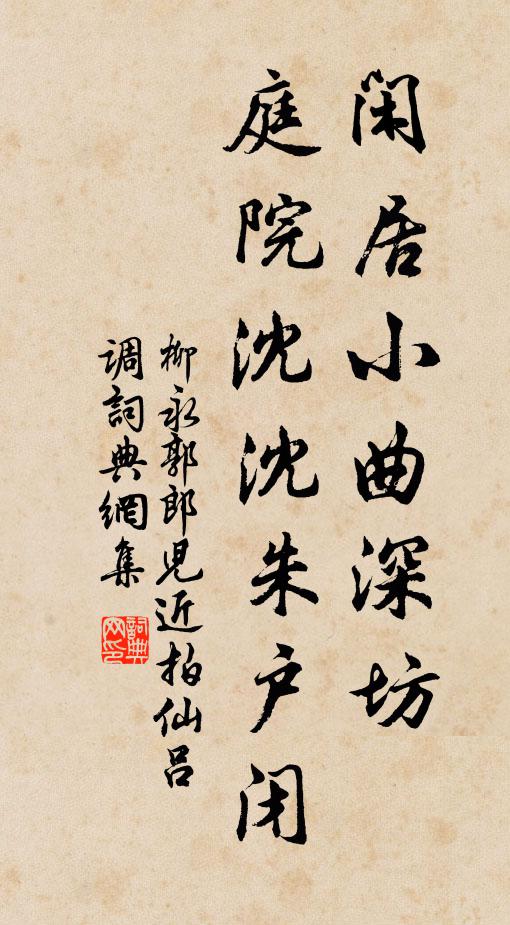 闲居小曲深坊
庭院沈沈朱户闭
柳永郭郎児近拍仙吕
调词典網集
詞典网印